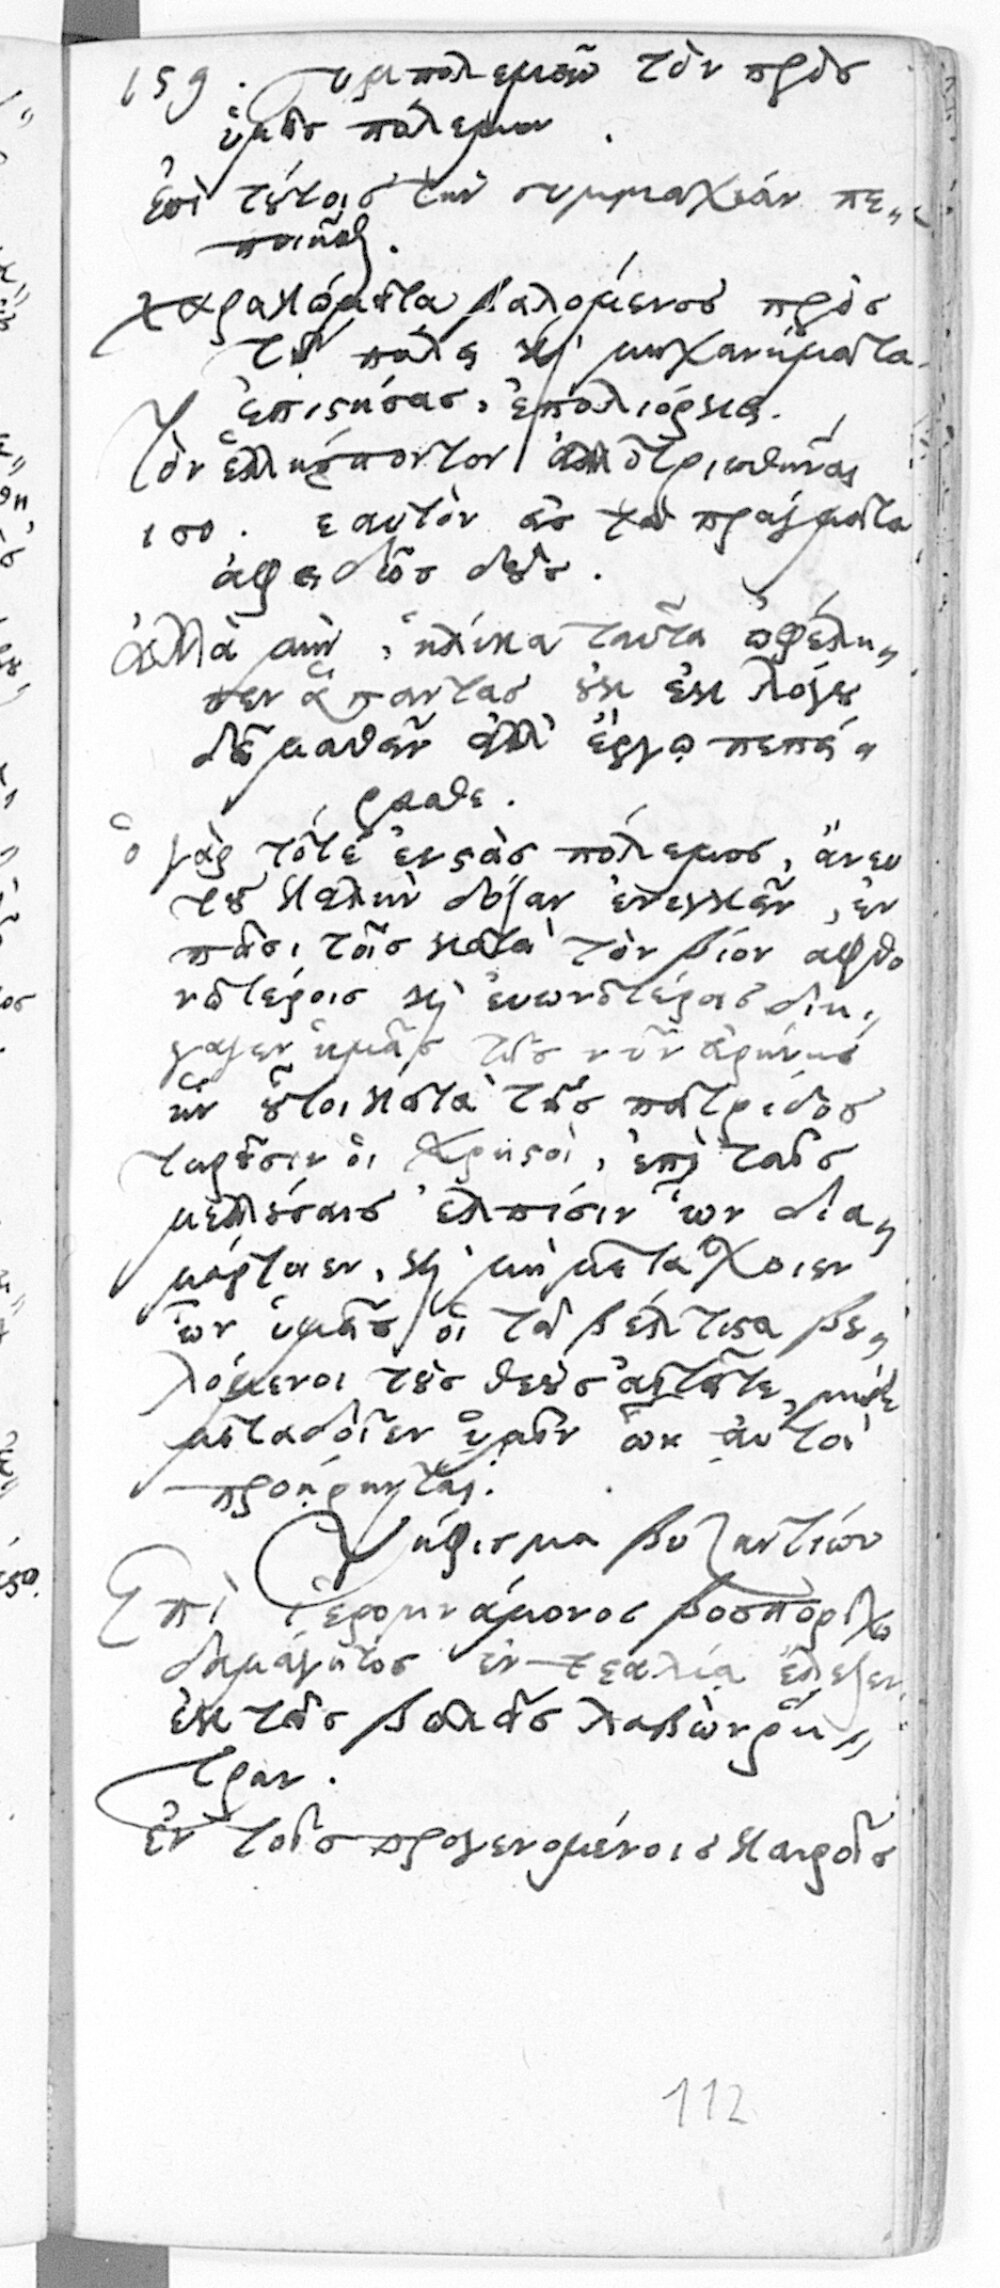 159. Συμπολεμεῖν τὸν πρὸς
ὑμᾶς πόλεμον.
ἐπὶ τούτοις τὴν συμμαχίαν πε„
ποιῆσθαι.
χαρακώματα βαλόμενος πρὸς
τῇ πόλει καὶ μηχανήματα
ἐπιστήσας, ἐπολιόρκει.
Τὸν ἑλλήσποντον ἀλλοτριωθῆναι
160. ἑαυτὸν εἰς τὰ πράγματα
ἀφειδῶς δοὺς.
ἀλλὰ μὴν, ἡλίκα ταῦτα ὠφέλη„
σεν ἅπαντας οὐκ ἐκ λόγου
δεῖ μαθεῖν ἀλλ' ἔργῳ πεπεί„
ρασθε.
ὁ γὰρ τότε ἐνστὰς πόλεμος, ἄνευ
τοῦ καλὴν δόξαν ἐνεγκεῖν, ἐν
πᾶσι τοῖς κατὰ τὸν βίον ἀφθο
νωτέροις καὶ εὐωνοτέροις διη„
γαγεν ὑμᾶς τῆς νῦν εἰρήνης
ἣν οὗτοι κατὰ τῆς πατρίδος
τηροῦσιν οἱ χρηστοὶ, ἐπὶ ταῖς
μελλούσαις ἐλπίσιν ὧν δια„
μάρτοιεν, καὶ μὴ μετάσχοιεν
ὧν ὑμεῖς οἱ τὰ βέλτιστα βου„
λόμενοι τοὺς θεοὺς αἰτεῖτε, μηδὲ
μεταδοῖεν ὑμῖν ὧν αὐτοὶ
προῄρηνται.
Ψήφισμα βυζαντίων
Ἐπὶ ἱερομνάμονος βοσπορίχω
δαμάγητος ἐν τᾷ ἁλίᾳ ἔλεξεν,
ἐκ τᾶς βωλᾶς λαβὼν ῥή„
τραν.
ἐν τοῖς προγενομένοις καιροῖς
112